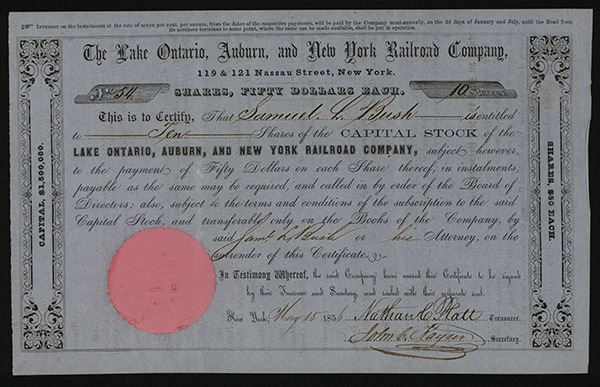 INTEREST on the instalments at the rate of seven per cent. per annum, from the dates of the respective payments, will be paid by the Company semi-annually, on the 2d days of January and July, until the Road from its northern terminus to some point, where the same can be made available, shall be put in operation.
The Lake Ontario, Auburn, and New York Railroad Company,
119 & 121 Nassau Street, New York.
No. 54. SHARES, FIFTY DOLLARS EACH. 10 Shares
This is to Certify, That Samuel L Bush is entitled
to Ten Shares of the CAPITAL STOCK of the
LAKE ONTARIO, AUBURN, AND NEW YORK RAILROAD COMPANY, subject however,
to the payment of Fifty Dollars on each Share thereof, in instalments,
payable as the same may be required, and called in by order of the Board of
Directors; also, subject to the terms and conditions of the subscription to the said
Capital Stock, and transferable only on the Books of the Company, by
said Saml L Bush or his Attorney, on the
surrender of this Certificate.
In Testimony Whereof, the said Company have caused this Certificate to be signed
by their Treasurer and Secretary, and sealed with their corporate seal.
New York, May 15 1856 Nathan C Platt Treasurer.
John C. Secretary.
CAPITAL, $1,500,000.
SHARES, $50 EACH.